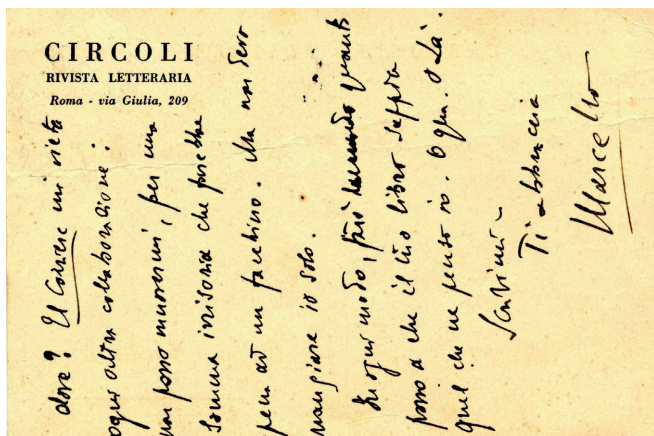 CIRCOLI
RIVISTA LETTERARIA
Roma - via Giulia, 209
dove? Il Corriere mi vieta
ogni altra collaborazione:
non posso muovermi, per una
somma irrisoria che
ad un facchino. Ma non devo
mangiare io solo.
In ogni modo, farò quanto
posso a che il tuo libro sappia
quel che ne penso io. O qua. O là.
Scrivimi -
Ti abbraccia
Marcello